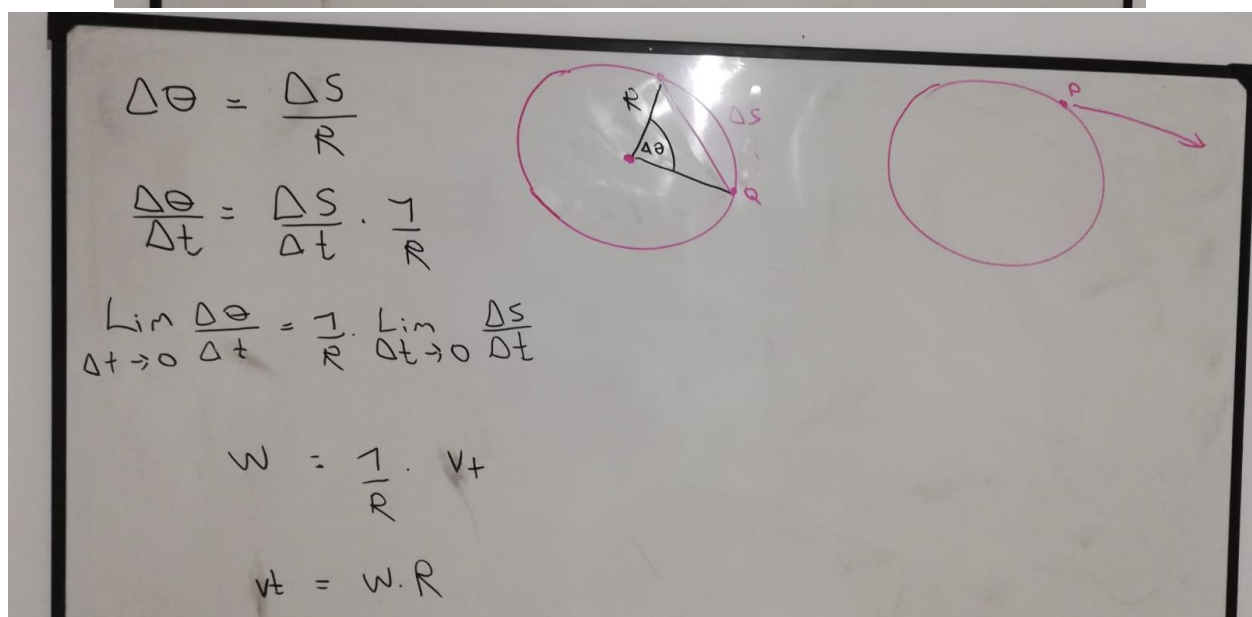 Δθ = ΔS / R
Δθ/Δt = ΔS/Δt · 1/R
Lim Δt→0 Δθ/Δt = 1/R · Lim Δt→0 ΔS/Δt
W = 1/R · vt
vt = W.R
R
Δθ
ΔS
Q
P